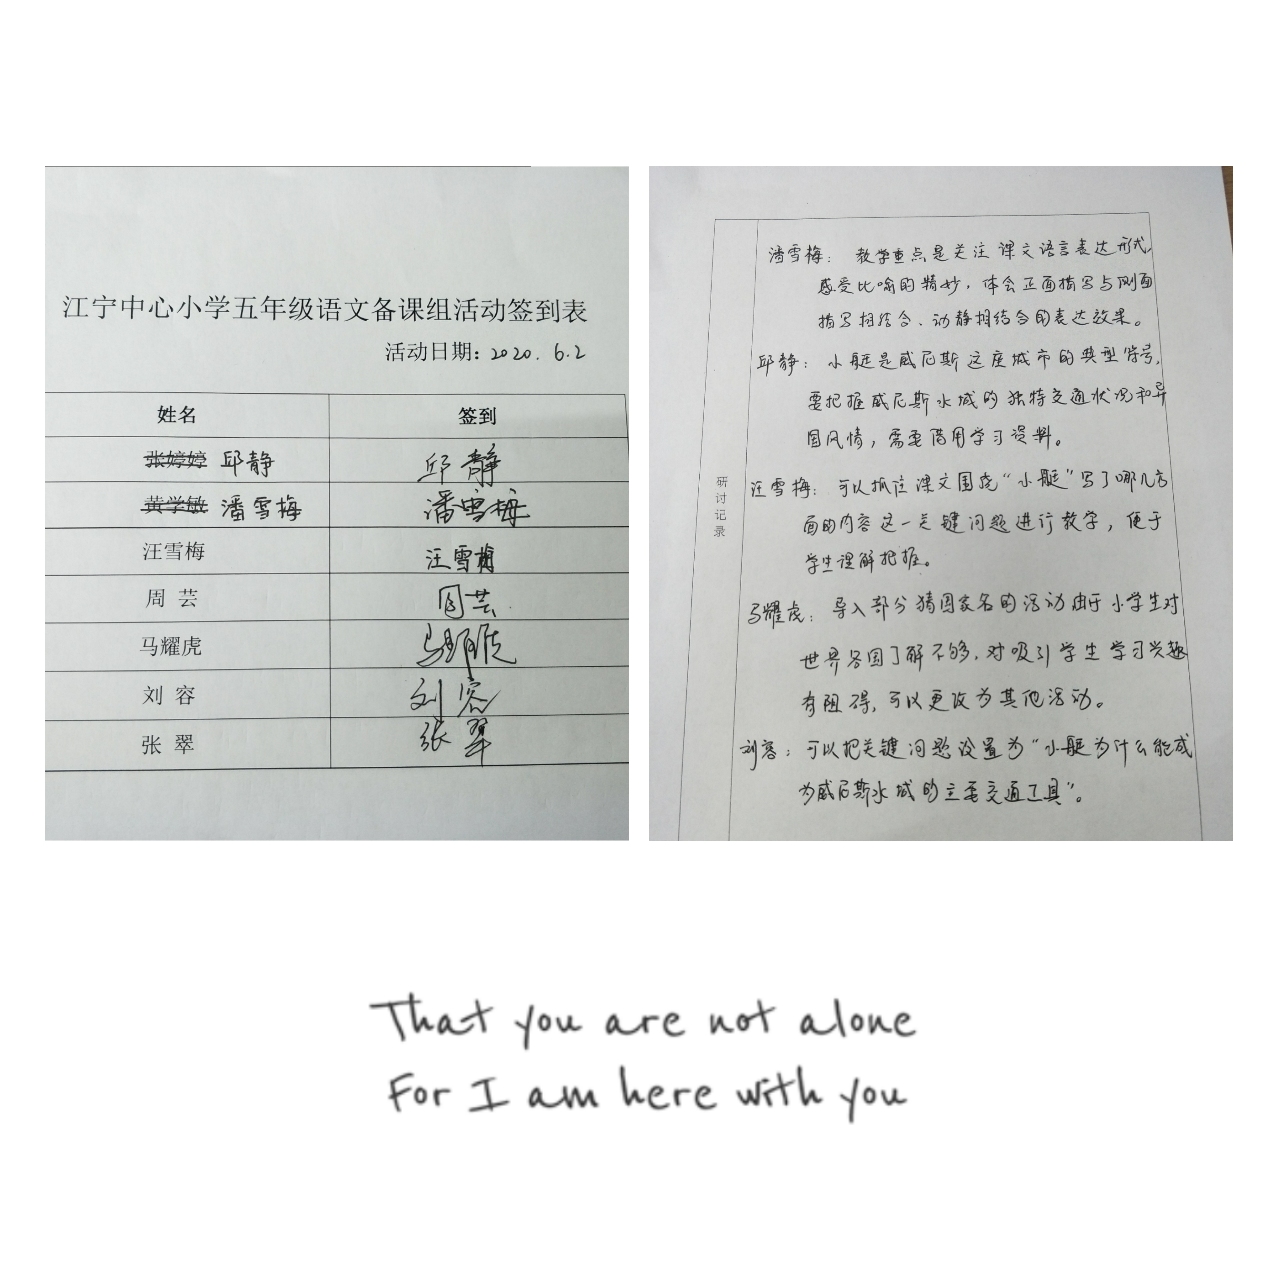 江宁中心小学五年级语文备课组活动签到表
活动日期：2020.6.2
姓名 签到
张婷婷 邱静 邱静
黄学敏 潘雪梅 潘雪梅
汪雪梅 汪雪梅
周 芸 周芸
马耀虎 马耀虎
刘 容 刘容
张 翠 张翠
研讨记录
潘雪梅：教学重点是关注课文语言表达形式，
感受比喻的精妙，体会正面描写与侧面
描写相结合、动静相结合的表达效果。
邱静：小艇是威尼斯这座城市的典型符号，
要把握威尼斯水域的独特交通状况和异
国风情，需要借用学习资料。
汪雪梅：可以抓住课文围绕“小艇”写了哪几方
面的内容这一关键问题进行教学，便于
学生理解把握。
马耀虎：导入部分猜国家名的活动由于小学生对
世界各国了解不够，对吸引学生学习兴趣
有阻碍，可以更改为其他活动。
刘容：可以把关键问题设置为“小艇为什么能成
为威尼斯水域的主要交通工具”。
That you are not alone
For I am here with you